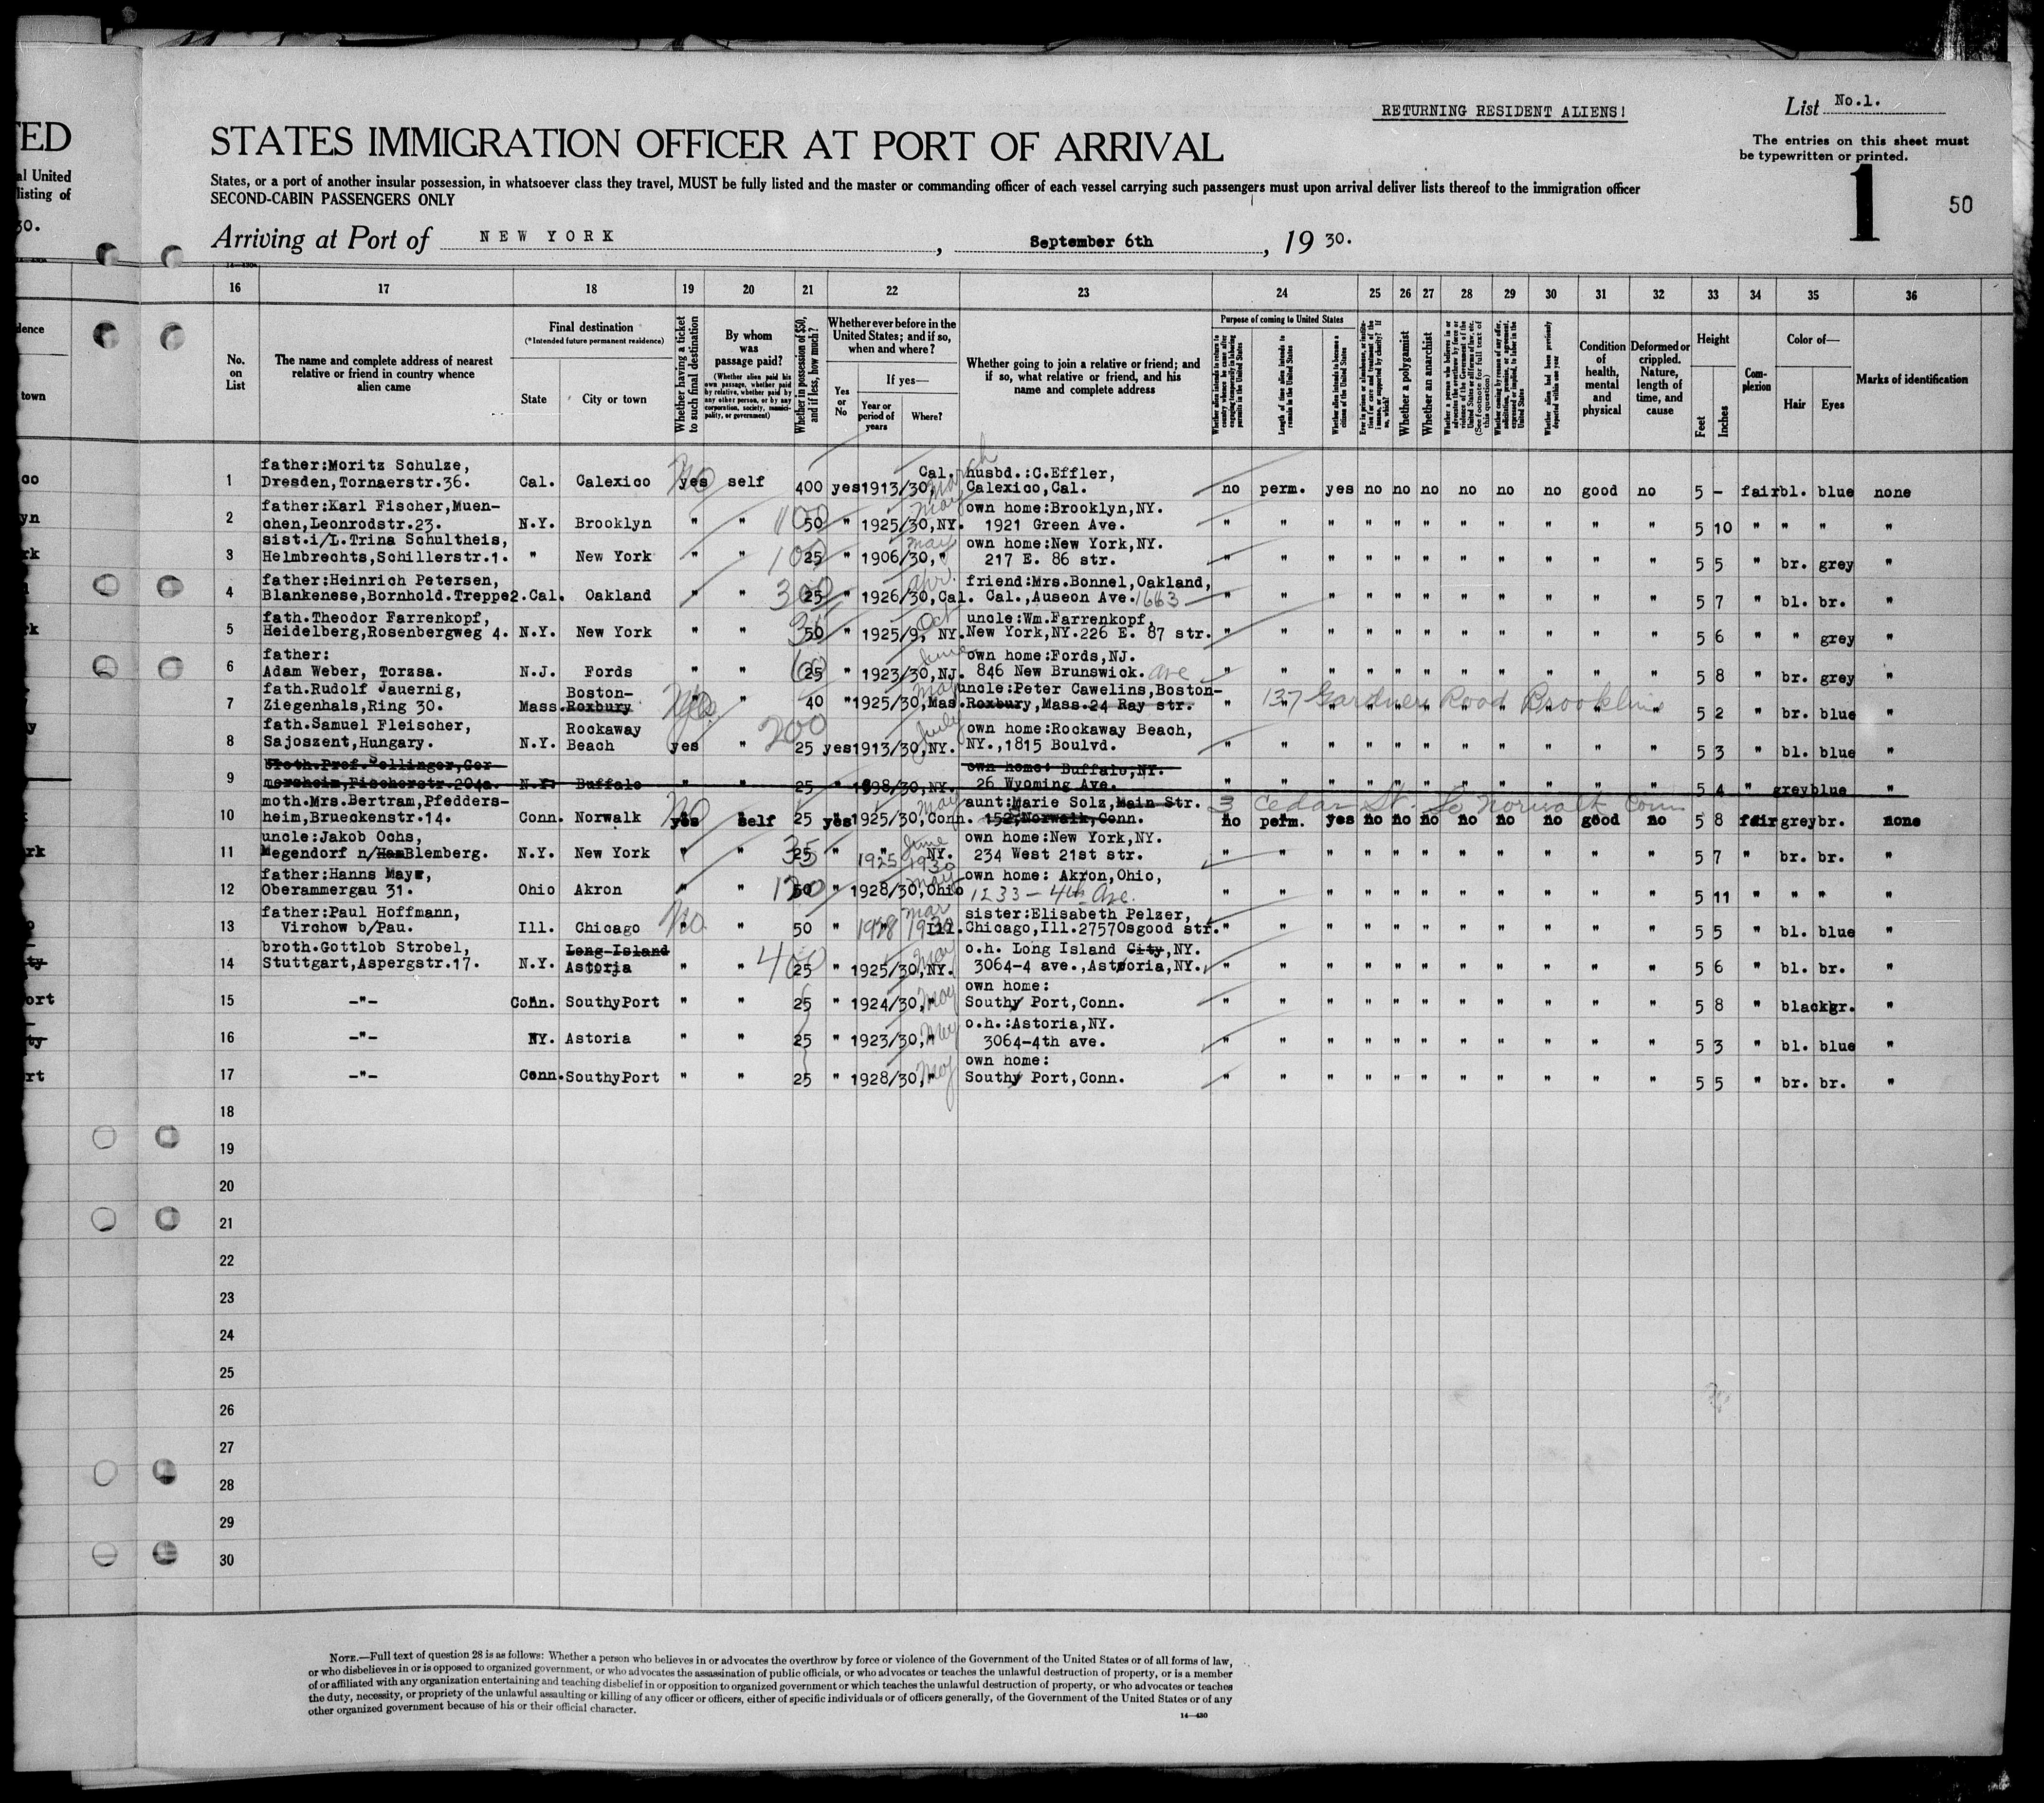 RETURNING RESIDENT ALIENS!
List No.1.
TED
STATES IMMIGRATION OFFICER AT PORT OF ARRIVAL
The entries on this sheet must
be typewritten or printed.
al United
States, or a port of another insular possession, in whatsoever class they travel, MUST be fully listed and the master or commanding officer of each vessel carrying such passengers must upon arrival deliver lists thereof to the immigration officer
listing of
SECOND-CABIN PASSENGERS ONLY
1
50
30.
Arriving at Port of NEW YORK, September 6th, 19 30.
16 17 18 19 20 21 22 23 24 25 26 27 28 29 30 31 32 33 34 35 36
No. on List
The name and complete address of nearest relative or friend in country whence alien came
Final destination
(*Intended future permanent residence)
State
City or town
Whether having a ticket to such final destination
By whom was passage paid?
(Whether alien paid his own passage, whether paid by relative, whether paid by any other person, or by any corporation, society, municipality, or government)
Whether in possession of $50, and if less, how much?
Whether ever before in the United States; and if so, when and where?
Yes or No
If yes—
Year or period of years
Where?
Whether going to join a relative or friend; and if so, what relative or friend, and his name and complete address
Purpose of coming to United States
Whether alien intends to return to country whence he came after engaging temporarily in laboring pursuits in the United States
Length of time alien intends to remain in the United States
Whether alien intends to become a citizen of the United States
Whether a polygamist
Whether an anarchist
Whether alien had been previously deported within one year
Condition of health, mental and physical
Deformed or crippled. Nature, length of time, and cause
Height
Feet
Inches
Complexion
Color of—
Hair
Eyes
Marks of identification
1 father:Moritz Schulze, Dresden,Tornaerstr.36. Cal. Calexico No yes self 400 yes 1913/30, Cal. March husbd.:C.Effler, Calexico,Cal. no perm. yes no no no no no no good no 5 - fair bl. blue none
2 father:Karl Fischer,Muenchen,Leonrodstr.23. N.Y. Brooklyn " " 100 50 " 1925/30,NY. May own home:Brooklyn,NY. 1921 Green Ave. " " " " " " " " " " " 5 10 " " " "
3 sist.i/L.Trina Schultheis, Helmbrechts,Schillerstr.1. " New York " " 100 25 " 1906/30," May own home:New York,NY. 217 E. 86 str. " " " " " " " " " " " 5 5 " br. grey "
4 father:Heinrich Petersen, Blankenese,Bornhold.Treppe2. Cal. Oakland " " 300 25 " 1926/30,Cal. Apr. friend:Mrs.Bonnel,Oakland, Cal.,Auseon Ave. 1663 " " " " " " " " " " " 5 7 " bl. br. "
5 fath.Theodor Farrenkopf, Heidelberg,Rosenbergweg 4. N.Y. New York " " 35 50 " 1925/9, NY. Oct uncle:Wm.Farrenkopf, New York,NY.226 E. 87 str. " " " " " " " " " " " 5 6 " " grey "
6 father: Adam Weber, Torzsa. N.J. Fords " " 60 25 " 1923/30,NJ. June own home:Fords,NJ. 846 New Brunswick. Ave " " " " " " " " " " " 5 8 " br. grey "
7 fath.Rudolf Jauernig, Ziegenhals,Ring 30. Mass. Boston-Roxbury " " 40 " 1925/30,Mas. May uncle:Peter Cawelins,Boston-Roxbury,Mass.24 Ray str. 137 Gardner Road Brookline " " " " " " " " " " " 5 2 " br. blue "
8 fath.Samuel Fleischer, Sajoszent,Hungary. N.Y. Rockaway Beach yes " 200 25 yes 1913/30,NY. July own home:Rockaway Beach, NY.,1815 Boulvd. " " " " " " " " " " " 5 3 " bl. blue "
9 broth.Prof.Sellinger,Germersheim,Fischerstr.204a. N.Y. Buffalo " " 25 " 1898/30,NY. own home: Buffalo,NY. 26 Wyoming Ave. " " " " " " " " " " " 5 4 " grey blue "
10 moth.Mrs.Bertram,Pfeddersheim,Brueckenstr.14. Conn. Norwalk No yes self 25 yes 1925/30,Conn. May aunt:Marie Solz,Main Str. 152,Norwalk,Conn. 3 Cedar St. So Norwalk Conn no perm. yes no no no no no no good no 5 8 fair grey br. none
11 uncle:Jakob Ochs, Megendorf n/Ham Blemberg. N.Y. New York " " 35 25 " " 1925 June 1930 NY. own home:New York,NY. 234 West 21st str. " " " " " " " " " " " 5 7 " br. br. "
12 father:Hanns Mayr, Oberammergau 31. Ohio Akron " " 120 50 " 1928/30,Ohio May own home: Akron,Ohio, 1233 - 4th Ave. " " " " " " " " " " " 5 11 " " " "
13 father:Paul Hoffmann, Virchow b/Pau. Ill. Chicago No " 50 " 1928 Mar 1930 Ill. sister:Elisabeth Pelzer, Chicago,Ill.2757Osgood str. " " " " " " " " " " " 5 5 " bl. blue "
14 broth.Gottlob Strobel, Stuttgart,Aspergstr.17. N.Y. Long-Island Astoria " " 400 25 " 1925/30,NY. May o.h. Long Island City,NY. 3064-4 ave.,Astoria,NY. " " " " " " " " " " " 5 6 " bl. br. "
15 -"- Conn. SouthyPort " " 25 " 1924/30," May own home: Southy Port,Conn. " " " " " " " " " " " 5 8 " black gr. "
16 -"- NY. Astoria " " 25 " 1923/30," May o.h.:Astoria,NY. 3064-4th ave. " " " " " " " " " " " 5 3 " bl. blue "
17 -"- Conn. SouthyPort " " 25 " 1928/30," May own home: Southy Port,Conn. " " " " " " " " " " " 5 5 " br. br. "
18
19
20
21
22
23
24
25
26
27
28
29
30
NOTE.—Full text of question 28 is as follows: Whether a person who believes in or advocates the overthrow by force or violence of the Government of the United States or of all forms of law,
or who disbelieves in or is opposed to organized government, or who advocates the assassination of public officials, or who advocates or teaches the unlawful destruction of property, or is a member
of or affiliated with any organization entertaining and teaching disbelief in or opposition to organized government or which teaches the unlawful destruction of property, or who advocates or teaches
the duty, necessity, or propriety of the unlawful assaulting or killing of any officer or officers, either of specific individuals or of officers generally, of the Government of the United States or of any
other organized government because of his or their official character.
14—430